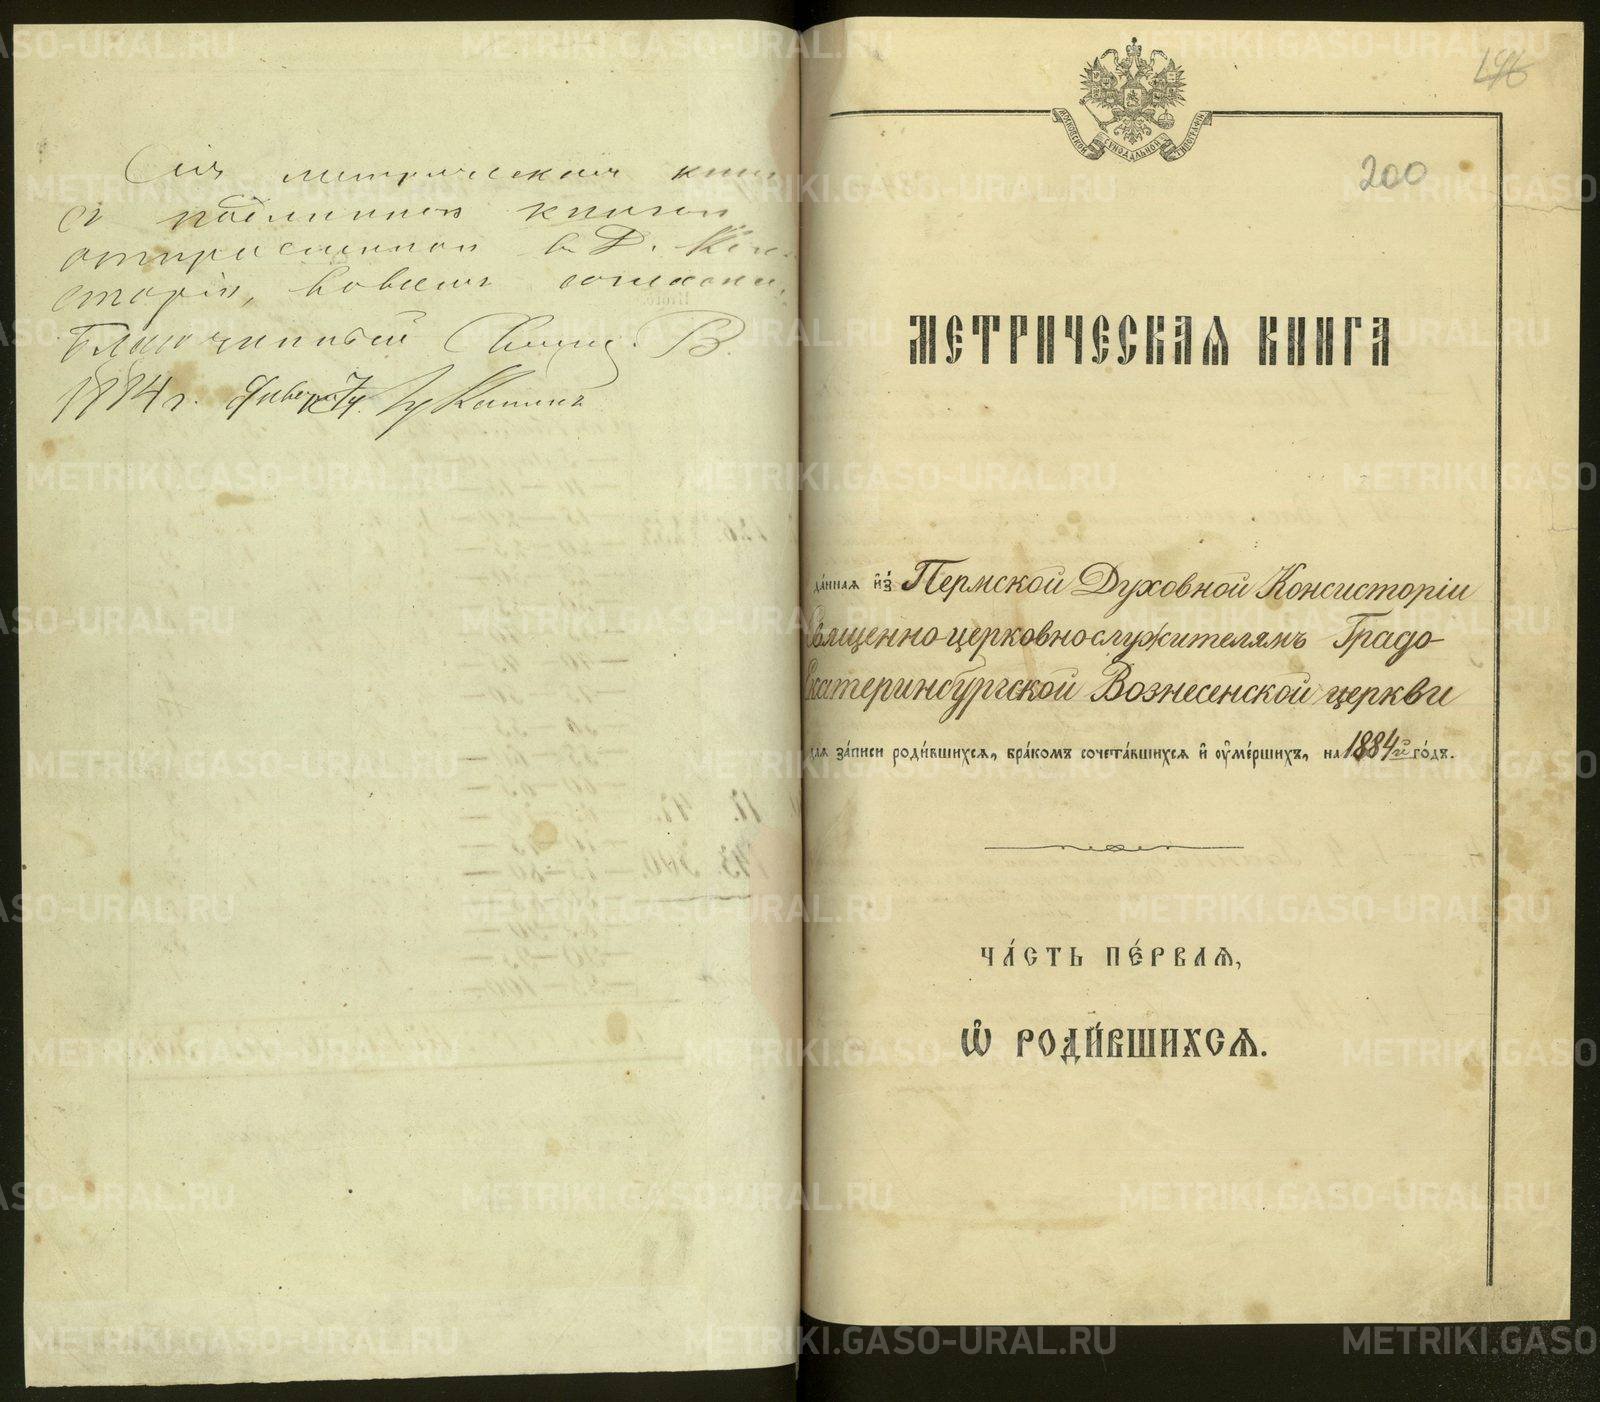 Сія метрическая книга
съ подлинною книгою
отправленною въ Д. Кон-
сторію, вовсемъ согласна.
Благочинный Священ. В.
1884 г. Января
196
200
МОСКОВСКОЙ СѴНОДАЛЬНОЙ ТИПОГРАФІИ
МЕТРИЧЕСКАЯ КНИГА
да́нная и҆з̾ Пермской Духовной Консисторіи
Священно-церковнослужителямъ Градо-
Екатеринбургской Вознесенской церкви
для за́писи роди́вшихся, бра́комъ сочета́вшихся и҆ оу҆ме́ршихъ, на 1884й го́дъ.
ЧА́СТЬ ПЕ́РВАЯ,
Ѽ РОДИ́ВШИХСЯ.
METRIKI.GASO-URAL.RU